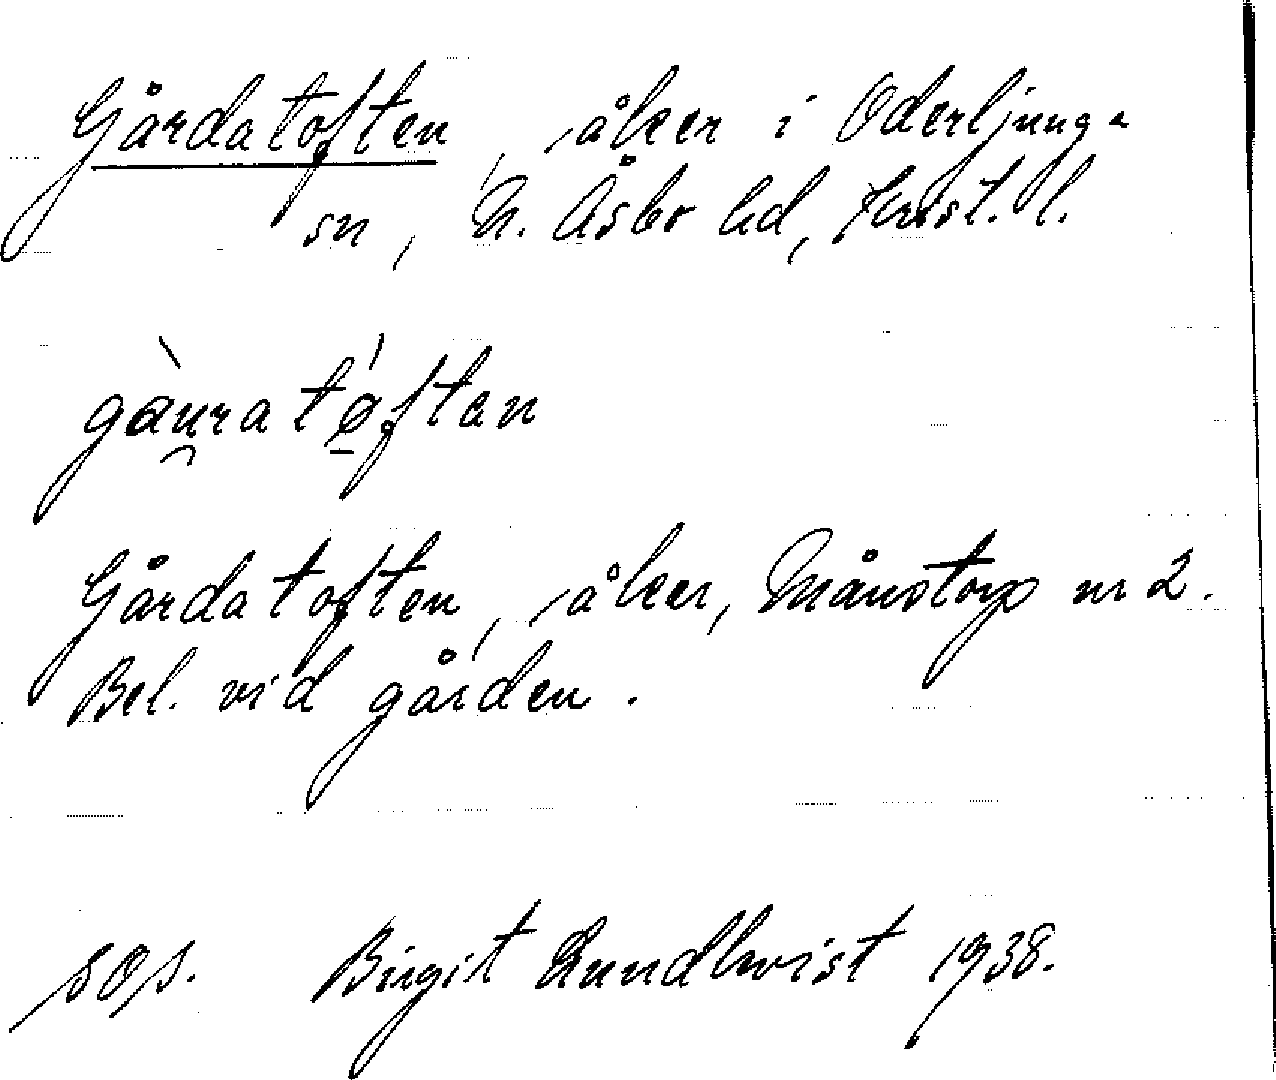 Gårdatoften, åker i Oderljunga
sn, N. Åsbo hd, Krist. l.
gàu̯ratǿ̠ften
Gårdatoften, åker, Månstorp nr 2.
Bel. vid gården.
Birgit Lundkvist 1938.